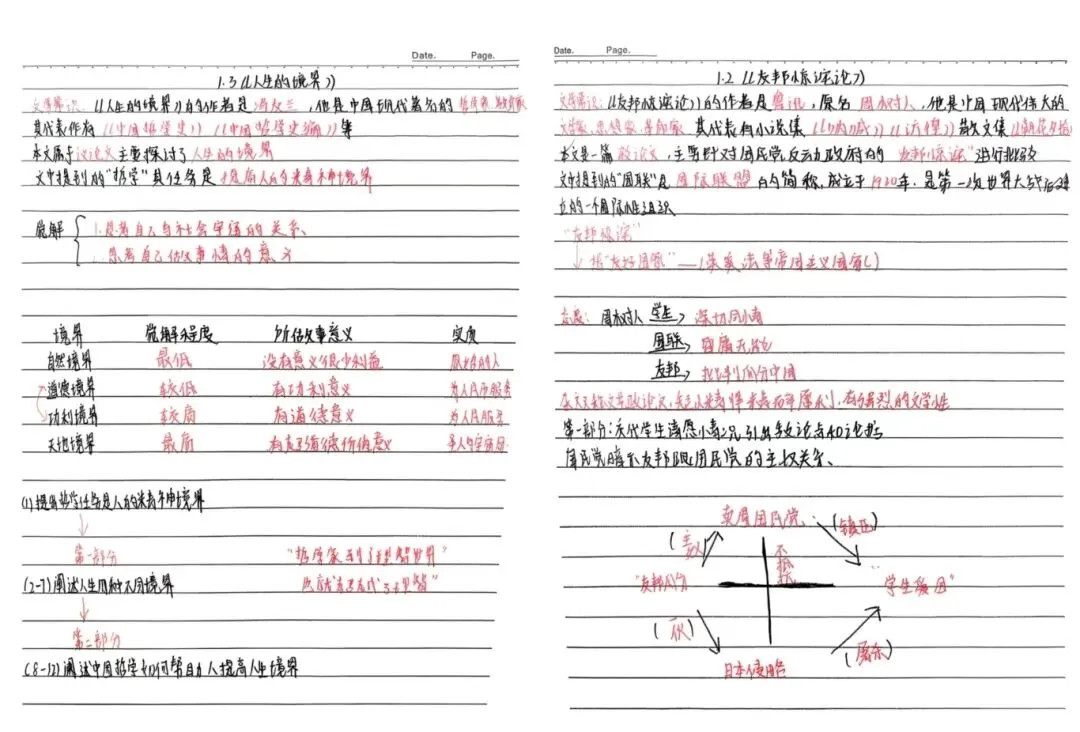 Date. Page.
1.3《人生的境界》
文学常识:《人生的境界》的作者是冯友兰,他是中国现代著名的哲学家、教育家
其代表作有《中国哲学史》《中国哲学史新编》等
本文属于议论文主要探讨了人生的境界
文中提到的"哲学"其任务是提高人的精神境界
觉解
1.思考自己与社会宇宙的关系、
思考自己做事情的意义
境界 觉解程度 所做事意义 实质
自然境界 最低 没有意义很少利益
道德境界 较低 有功利意义 为人民服务
功利境界 较高 有道德意义 为人民服务
天地境界 最高
(1)提出哲学任务是人的精神境界
第一部分 "哲学家
(2-7)阐述人生四种不同境界
第二部分
(8-12)阐述中国哲学如何帮助人提高人生境界
Date. Page.
1.2《友邦惊诧论》
文学常识:《友邦惊诧论》的作者是鲁迅,原名周树人,他是中国现代伟大的
文学家、思想家、革命家 其代表有小说集《呐喊》《彷徨》散文集《朝花夕拾》
本文是一篇政论文,主要针对国民党反动政府的"友邦惊诧"进行批驳
文中提到的"国联"是国际联盟的简称,成立于1920年,是第一次世界大战后建
立的一个国际性组织
"友邦惊诧"
指"友好国家"——(英、美、法等帝国主义国家)
态度: 周树人 学生 深切同情
国联 昏庸无能
友邦 批判瓜分中国
第一部分:交代学生请愿
国民党
卖国国民党
(镇压)
不抵抗
"友邦人士 "学生爱国"
(屠杀)
日本侵略